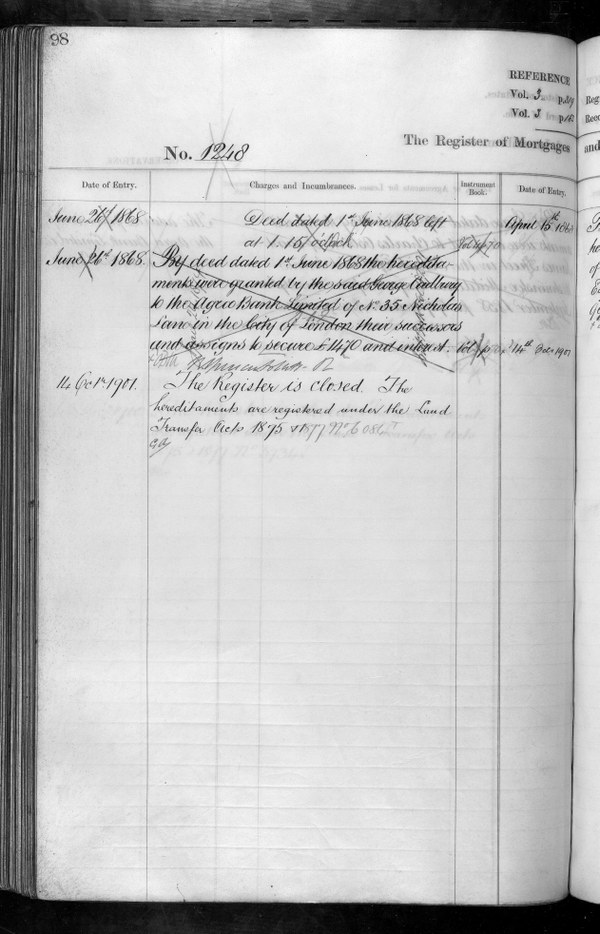 98
REFERENCE
Vol. 3. p.
Vol. 3 p.
The Register of Mortgages
No. 1248
Date of Entry. Charges and Incumbrances. Instrument Book. Date of Entry.
June 26th 1868 Deed dated 1st June 1868 left April 15th
at 1.15 o'clock
June 26th 1868. By deed dated 1st June 1868 the heredita-
ments were granted by the said George Cadbury
to the Agra Bank Limited of No. 35 Nicholas
Lane in the City of London their successors
and assigns to secure £1470 and interest. 14th Octr 1901
14 Octr 1901. The Register is closed. The
hereditaments are registered under the Land
Transfer Acts 1875 & 1877 No
and